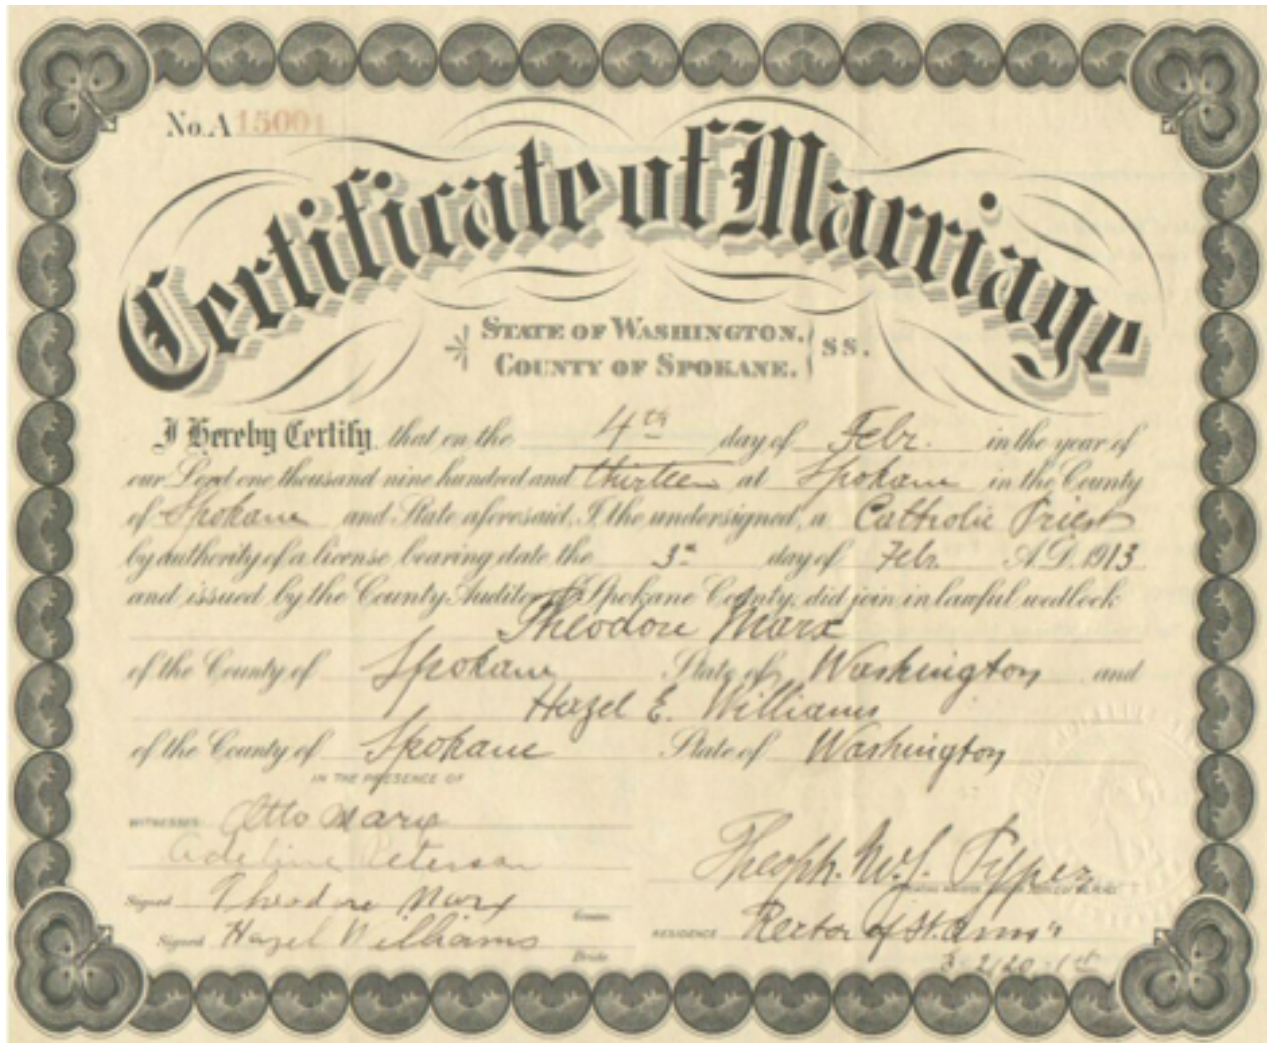 No. A 15001
Certificate of Marriage
STATE OF WASHINGTON.
COUNTY OF SPOKANE. } SS.
I Hereby Certify that on the 4th day of Febr. in the year of
our Lord one thousand nine hundred and thirteen at Spokane in the County
of Spokane and State aforesaid, I, the undersigned, a Catholic Priest
by authority of a license bearing date the 3rd day of Febr. A.D. 1913
and issued by the County Auditor of Spokane County, did join in lawful wedlock
Theodore Marx
of the County of Spokane State of Washington and
Hazel E. Williams
of the County of Spokane State of Washington
IN THE PRESENCE OF
WITNESSES Otto Marx
Adeline Peterson
Signed Theodore Marx Groom
Signed Hazel Williams Bride
Theoph. M. J. Pypez
RESIDENCE Rector of St. Ann's